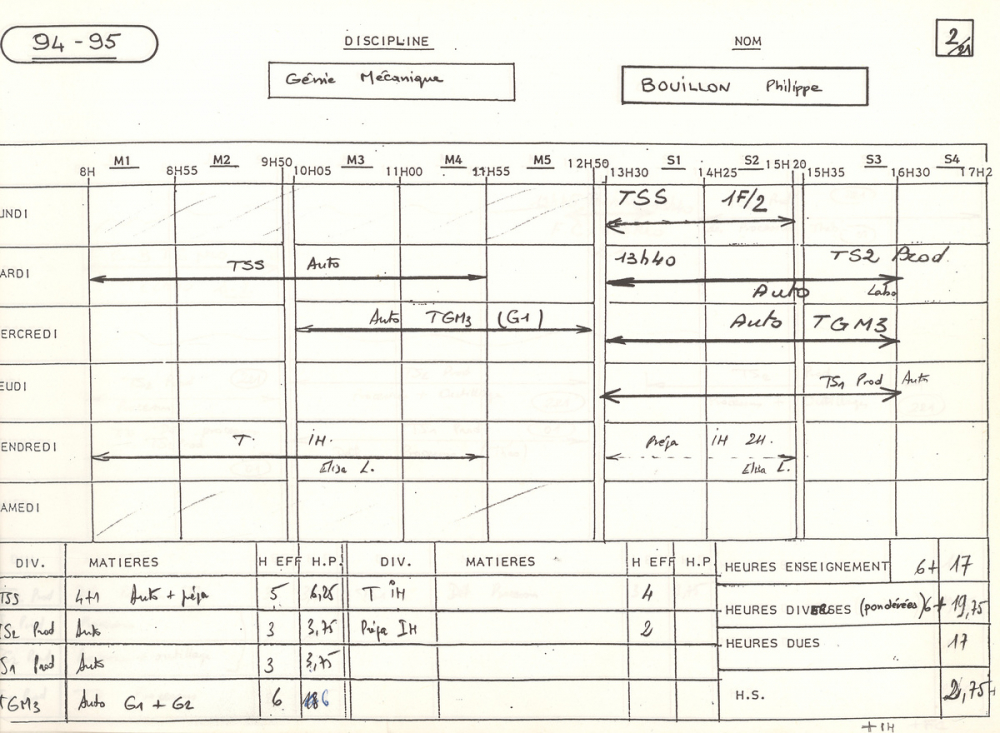 94-95 DISCIPLINE NOM 2/21
Génie Mécanique BOUILLON Philippe
M1 M2 M3 M4 M5 S1 S2 S3 S4
8H 8H55 9H50 10H05 11H00 11H55 12H50 13H30 14H25 15H20 15H35 16H30 17H2
UNDI TSS 1F/2
ARDI TSS Auto 13h40 TS2 Prod
Auto Labo
ERCREDI Auto TGM3 (G1) Auto TGM3
EUDI TS1 Prod Auto
ENDREDI T. iH. Prépa iH 2H.
Elisa L. Elisa L.
AMEDI
DIV. MATIERES H EFF H.P. DIV. MATIERES H EFF H.P. HEURES ENSEIGNEMENT 6+ 17
TSS 4+1 Auto + prépa 5 6,25 T iH 4
HEURES DIVERSES (pondérées) 6+ 19,75
S2 Prod Auto 3 3,75 Prépa IH 2
HEURES DUES 17
S1 Prod Auto 3 3,75
TGM3 Auto G1 + G2 6 6 H.S. 2,75+
+1H